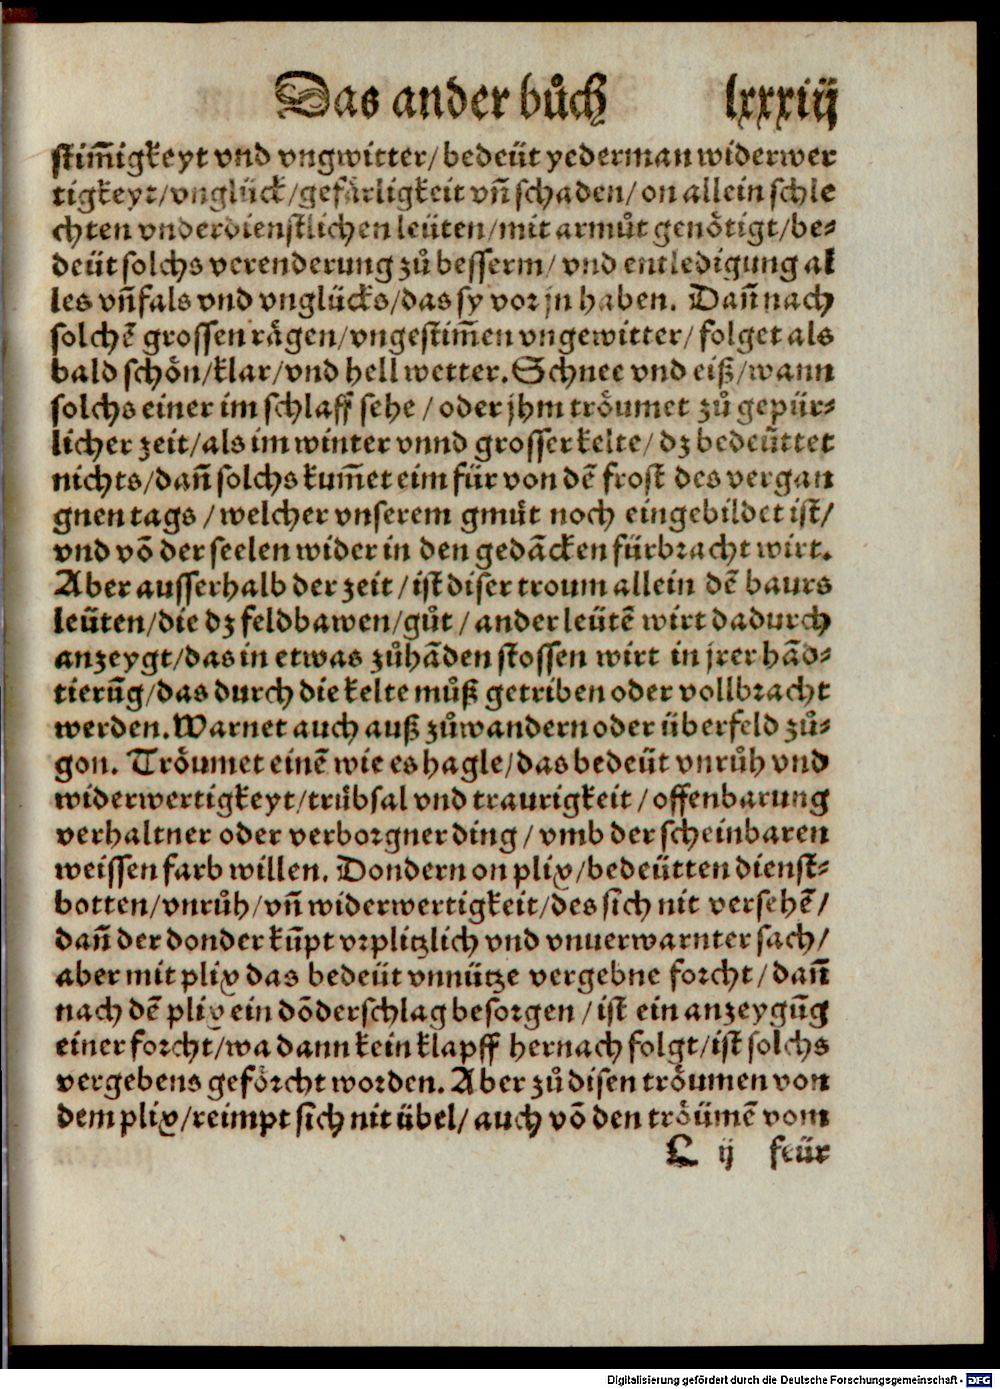 Das ander bůch lxxxiij
stim̃igkeyt vnd vngwitter/ bedeüt yederman widerwer
tigkeyt/vnglück/gefärligkeit vñ schaden/ on allein schle
chten vnderdienstlichen leüten/mit armůt genötigt/be⸗
deüt solchs verenderung zů besserm/ vnd entledigung al
les vñfals vnd vnglücks/das sy vor jn haben. Dañ nach
solchẽ grossen rägen/vngestim̃en vngewitter/ folget als
bald schön/klar/vnd hell wetter. Schnee vnd eiß/wann
solchs einer im schlaff sehe / oder jhm tröumet zů gepür⸗
licher zeit/als im winter vnnd grosser kelte/ dz bedeüttet
nichts/dañ solchs kum̃et eim für von dẽ frost des vergan
gnen tags /welcher vnserem gmüt noch eingebildet ist/
vnd võ der seelen wider in den gedãcken fürbracht wirt.
Aber ausserhalb der zeit /ist diser troum allein dẽ baurs
leüten/die dz feldbawen/gůt / ander leütẽ wirt dadurch
anzeygt/das in etwas zůhãden stossen wirt in jrer hãd⸗
tierũg/das durch die kelte můß getriben oder vollbracht
werden. Warnet auch auß zůwandern oder überfeld zů⸗
gon. Tröumet einẽ wie es hagle/das bedeüt vnrůh vnd
widerwertigkeyt/trübsal vnd traurigkeit / offenbarung
verhaltner oder verborgner ding / vmb der scheinbaren
weissen farb willen. Dondern on plix/bedeütten dienst⸗
botten/vnrůh/vñ widerwertigkeit/des sich nit versehẽ/
dañ der donder kũpt vrplitzlich vnd vnuerwarnter sach/
aber mit plix das bedeüt vnnütze vergebne forcht/ dañ
nach dẽ plix ein dõderschlag besorgen / ist ein anzeygũg
einer forcht/wa dann kein klapff hernach folgt/ist solchs
vergebens geförcht worden. Aber zů disen tröumen von
dem plix/reimpt sich nit übel/ auch võ den tröümẽ vom
L ij feür
Digitalisierung gefördert durch die Deutsche Forschungsgemeinschaft - DFG